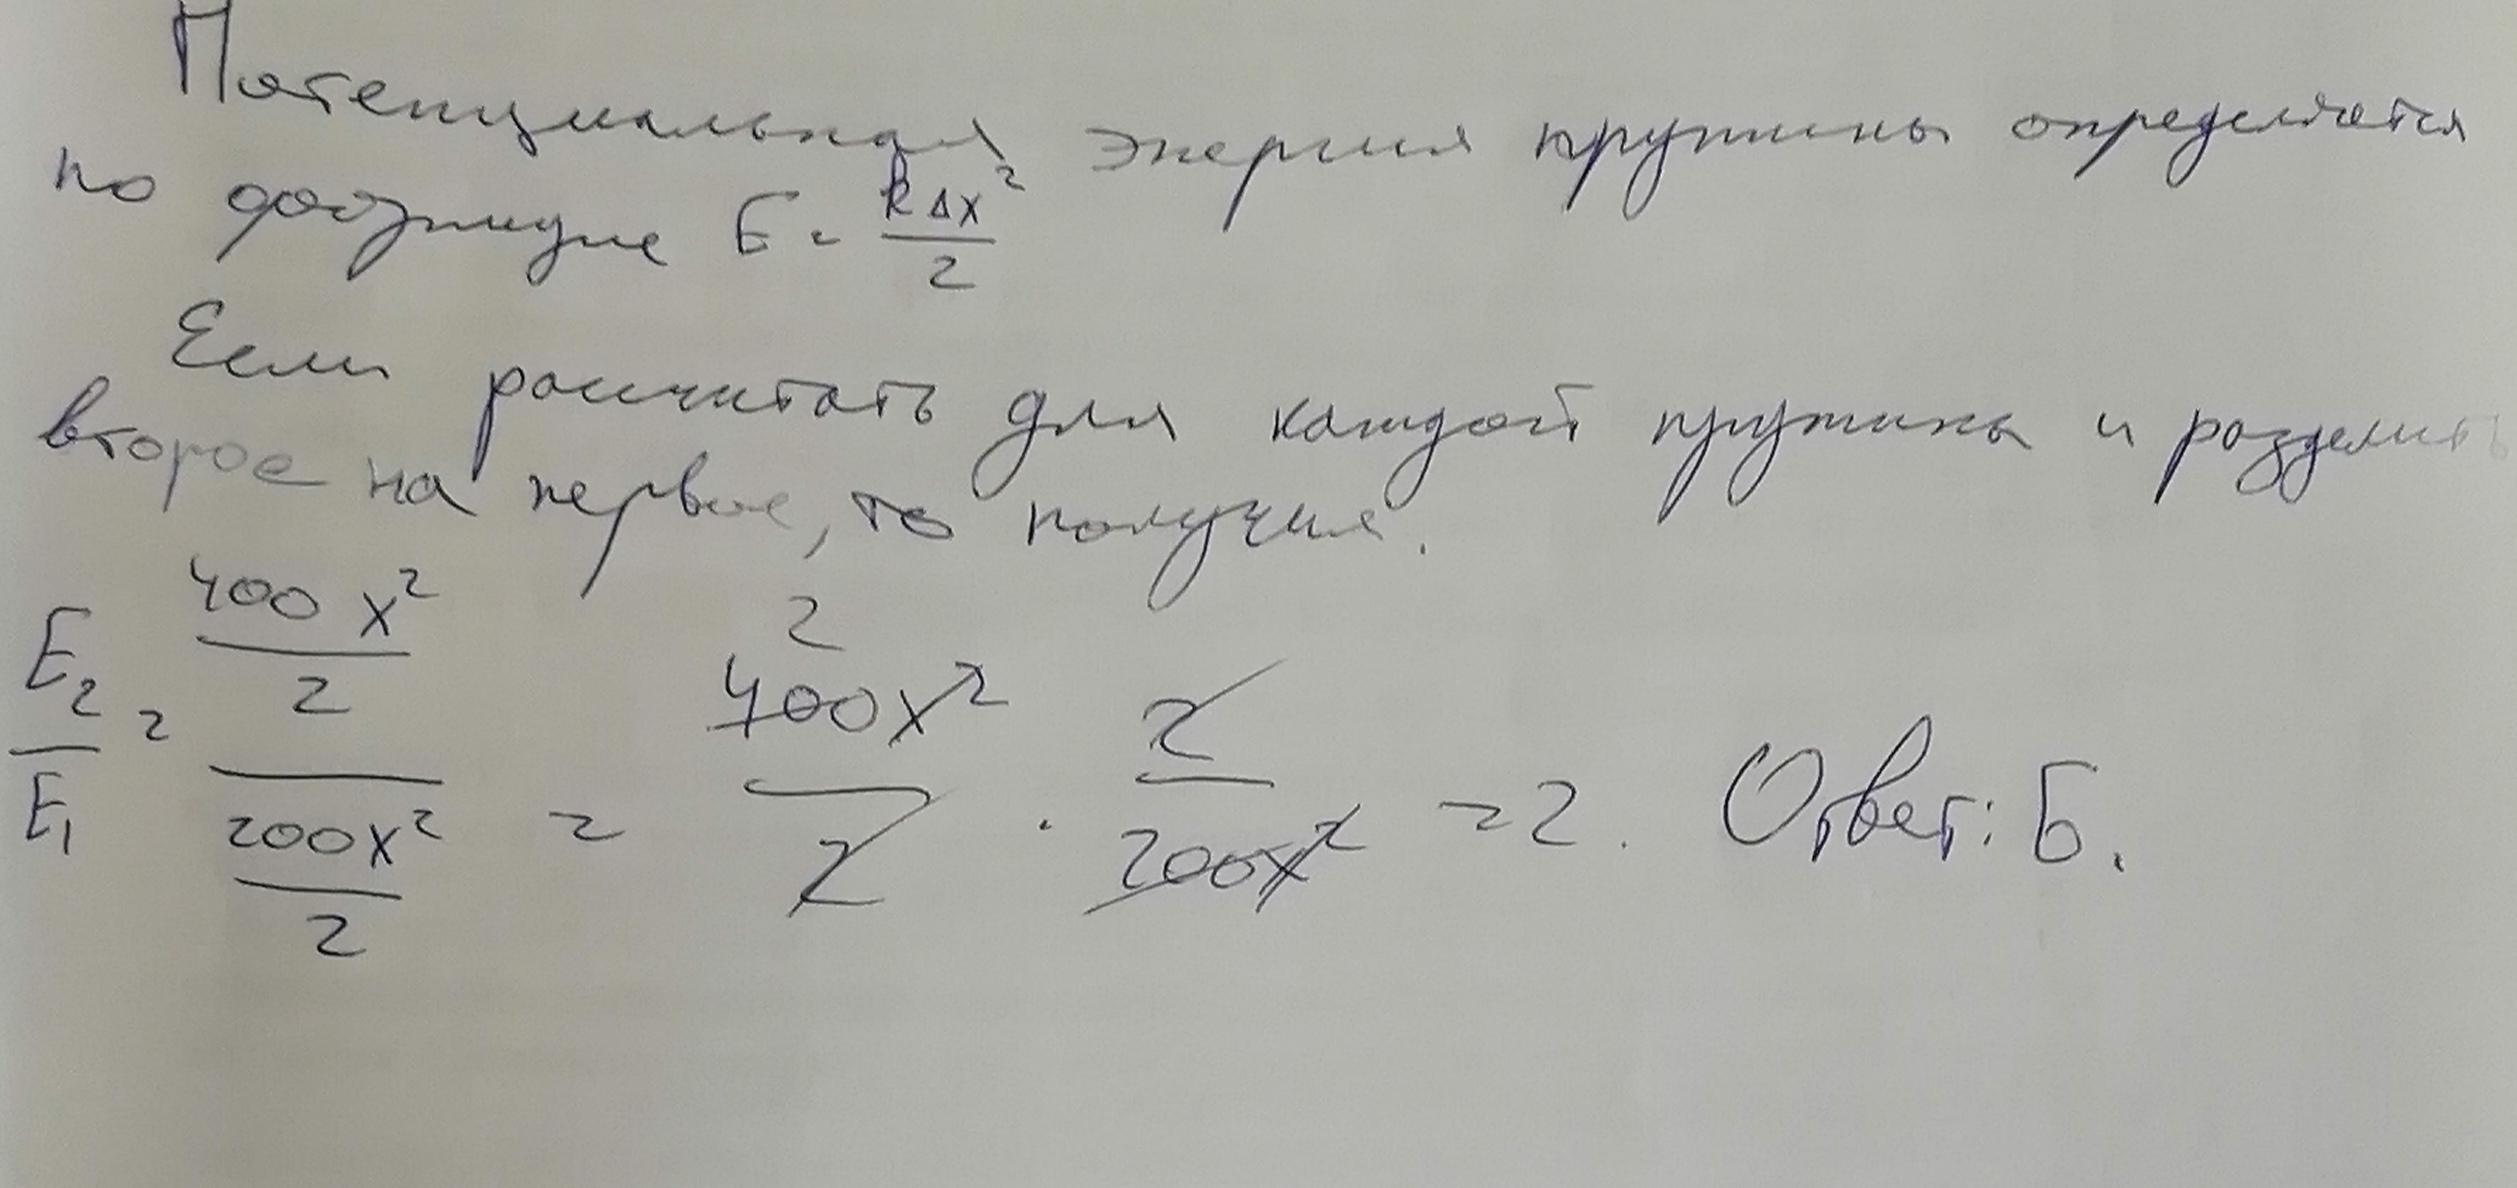 Потенциальная энергия пружины определяется
по формуле E = kΔx²/2
Если рассчитать для каждой пружины и разделить
второе на первое, то получим.
E₂/E₁ = (400x²/2)/(200x²/2) = 400x²/2 · 2/200x² = 2. Ответ: Б.